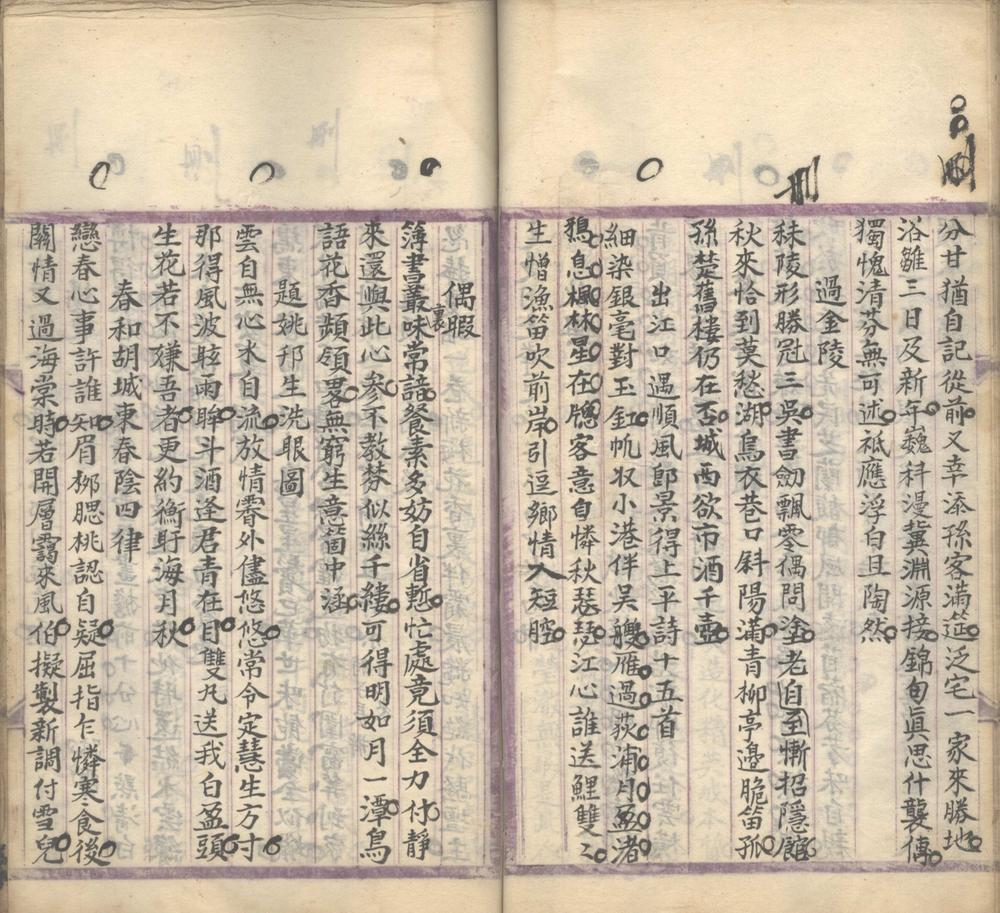 刪
分甘猶自記從前又幸添孫客滿筵泛宅一家來勝地
浴雛三日及新年巍科漫冀淵源接錦句眞思什襲傳
獨愧清芬無可述祗應浮白且陶然
過金陵
秣陵形勝冠三吳書劒飄零偶問塗老自至慚招隱館
秋來恰到莫愁湖烏衣巷口斜陽滿青柳亭邊脆笛孤
孫楚舊樓仍在否城西欲市酒千壺
出江口遇順風卽景得上平詩十五首
細染銀毫對玉釭帆收小港伴吳艭雁過荻浦月盈渚
鵶息楓林星在牕客意自憐秋瑟瑟江心誰送鯉雙〻
生憎漁笛吹前岸引逗鄉情入短腔
偶暇
簿書叢裏味常諳餐素多妨自省慙忙處竟須全力付靜
來還與此心參不教棼似絲千縷可得明如月一潭鳥
語花香頻領畧無窮生意箇中涵
題姚邦生洗眼圖
雲自無心水自流放情霄外儘悠悠常令定慧生方寸
那得風波眩兩眸斗酒逢君青在目雙丸送我白盈頭
生花若不嫌吾者更約衡盱海月秋
春和胡城東春陰四律
戀春心事許誰知眉柳腮桃認自疑屈指乍憐寒食後
關情又過海棠時若開層靄來風伯擬製新調付雪兒